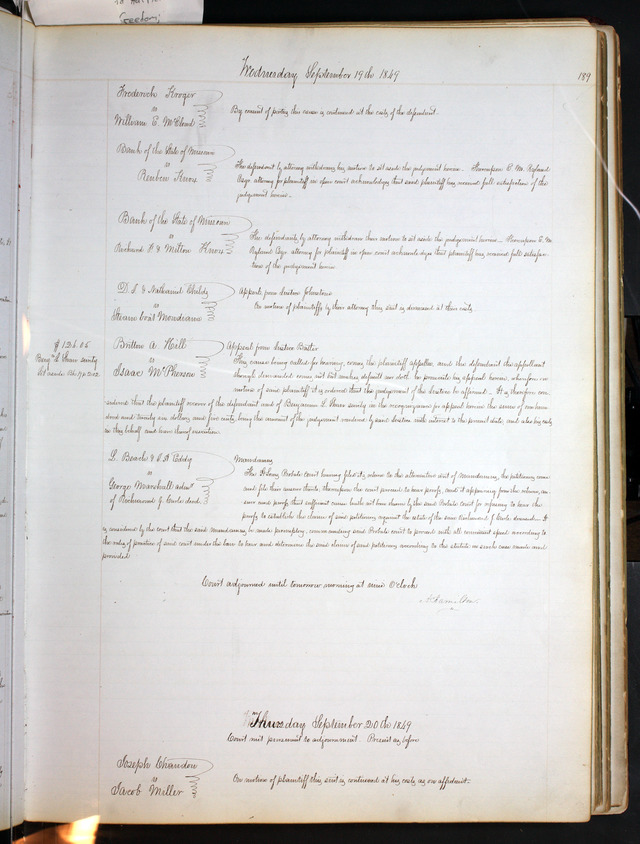 Greeting
Wednesday September 19th 1849
189
Frederick Kroger
vs
William E. McClend
By consent of parties this cause is continued at the costs of the defendant.
Bank of the State of Missouri
vs
Reuben Knox
The defendant by attorney withdraws his motion to set aside the judgement herein. Thompson E. M. Ryland
Esqr. attorney for plaintiff in open court acknowledges that said plaintiff has received full satisfaction of the
judgement herein.
Bank of the State of Missouri
vs
& Milton Knox
The defendants by attorney withdraw their motion to set aside the judgement herein. Thompson E. M.
Ryland Esqr. attorney for plaintiff in open court acknowledges that plaintiff has received full satisfac-
tion of the judgement herein
D. S. & Nathaniel Childs
vs
Steam boat Mondiana
Appeal from Justice Johnston
On motion of plaintiffs by their attorney this suit is dismissed at their costs.
$126.06
Benjn. L. surety
Britton A. Hill
vs
Isaac McPherson
Appeal from Justice Butler
This cause being called for hearing, comes the plaintiff appellee, and the defendant the appellant
though demanded comes not but makes default nor doth he prosecute his appeal herein, wherefore on
motion of said plaintiff it is ordered that the judgement of the Justice be affirmed. It is therefore con-
sidered that the plaintiff recover of the defendant and of Benjamin L. surety in the recognizance for appeal herein the sum of one hun-
dred and twenty six dollars and five cents, being the amount of the judgement rendered by said Justice with interest to the present date, and also his costs
in this behalf and have thereof execution.
L. Beach & Eddy
vs
George Marshall admr.
of G. Earle decd.
Mandamus
The St. Louis Probate Court having filed its return to the alternative writ of mandamus, the petitioners come
and file their answer thereto, thereupon the court proceed to hear proofs, and it appearing from the return, an-
swer and proofs, that sufficient cause hath not been shown by the said Probate Court for refusing to hear the
proofs to establish the claim of said petitioners against the estate of the said G. Earle deceased. It
is considered by the court that the said mandamus be made peremptory, commanding said Probate Court to proceed with all convenient speed according to
the rules of practice of said court under the law to hear and determine the said claim of said petitioners according to the statute in such case made and
provided.
Court adjourned until tomorrow morning at nine O'clock
A. Hamilton
Thursday September 20th 1849
Court met pursuant to adjournment. Present as before
Joseph Charless
vs
Jacob Miller
On motion of plaintiff this suit is continued at his costs as on affidavit.